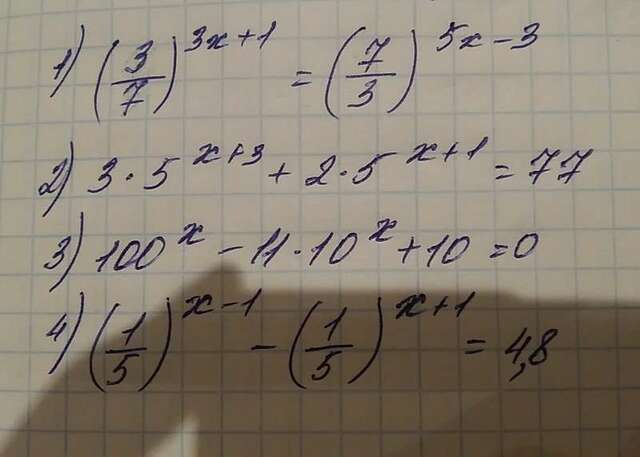 1) (3/7)^(3x+1) = (7/3)^(5x-3)
2) 3·5^(x+3) + 2·5^(x+1) = 77
3) 100^x - 11·10^x + 10 = 0
4) (1/5)^(x-1) - (1/5)^(x+1) = 4,8